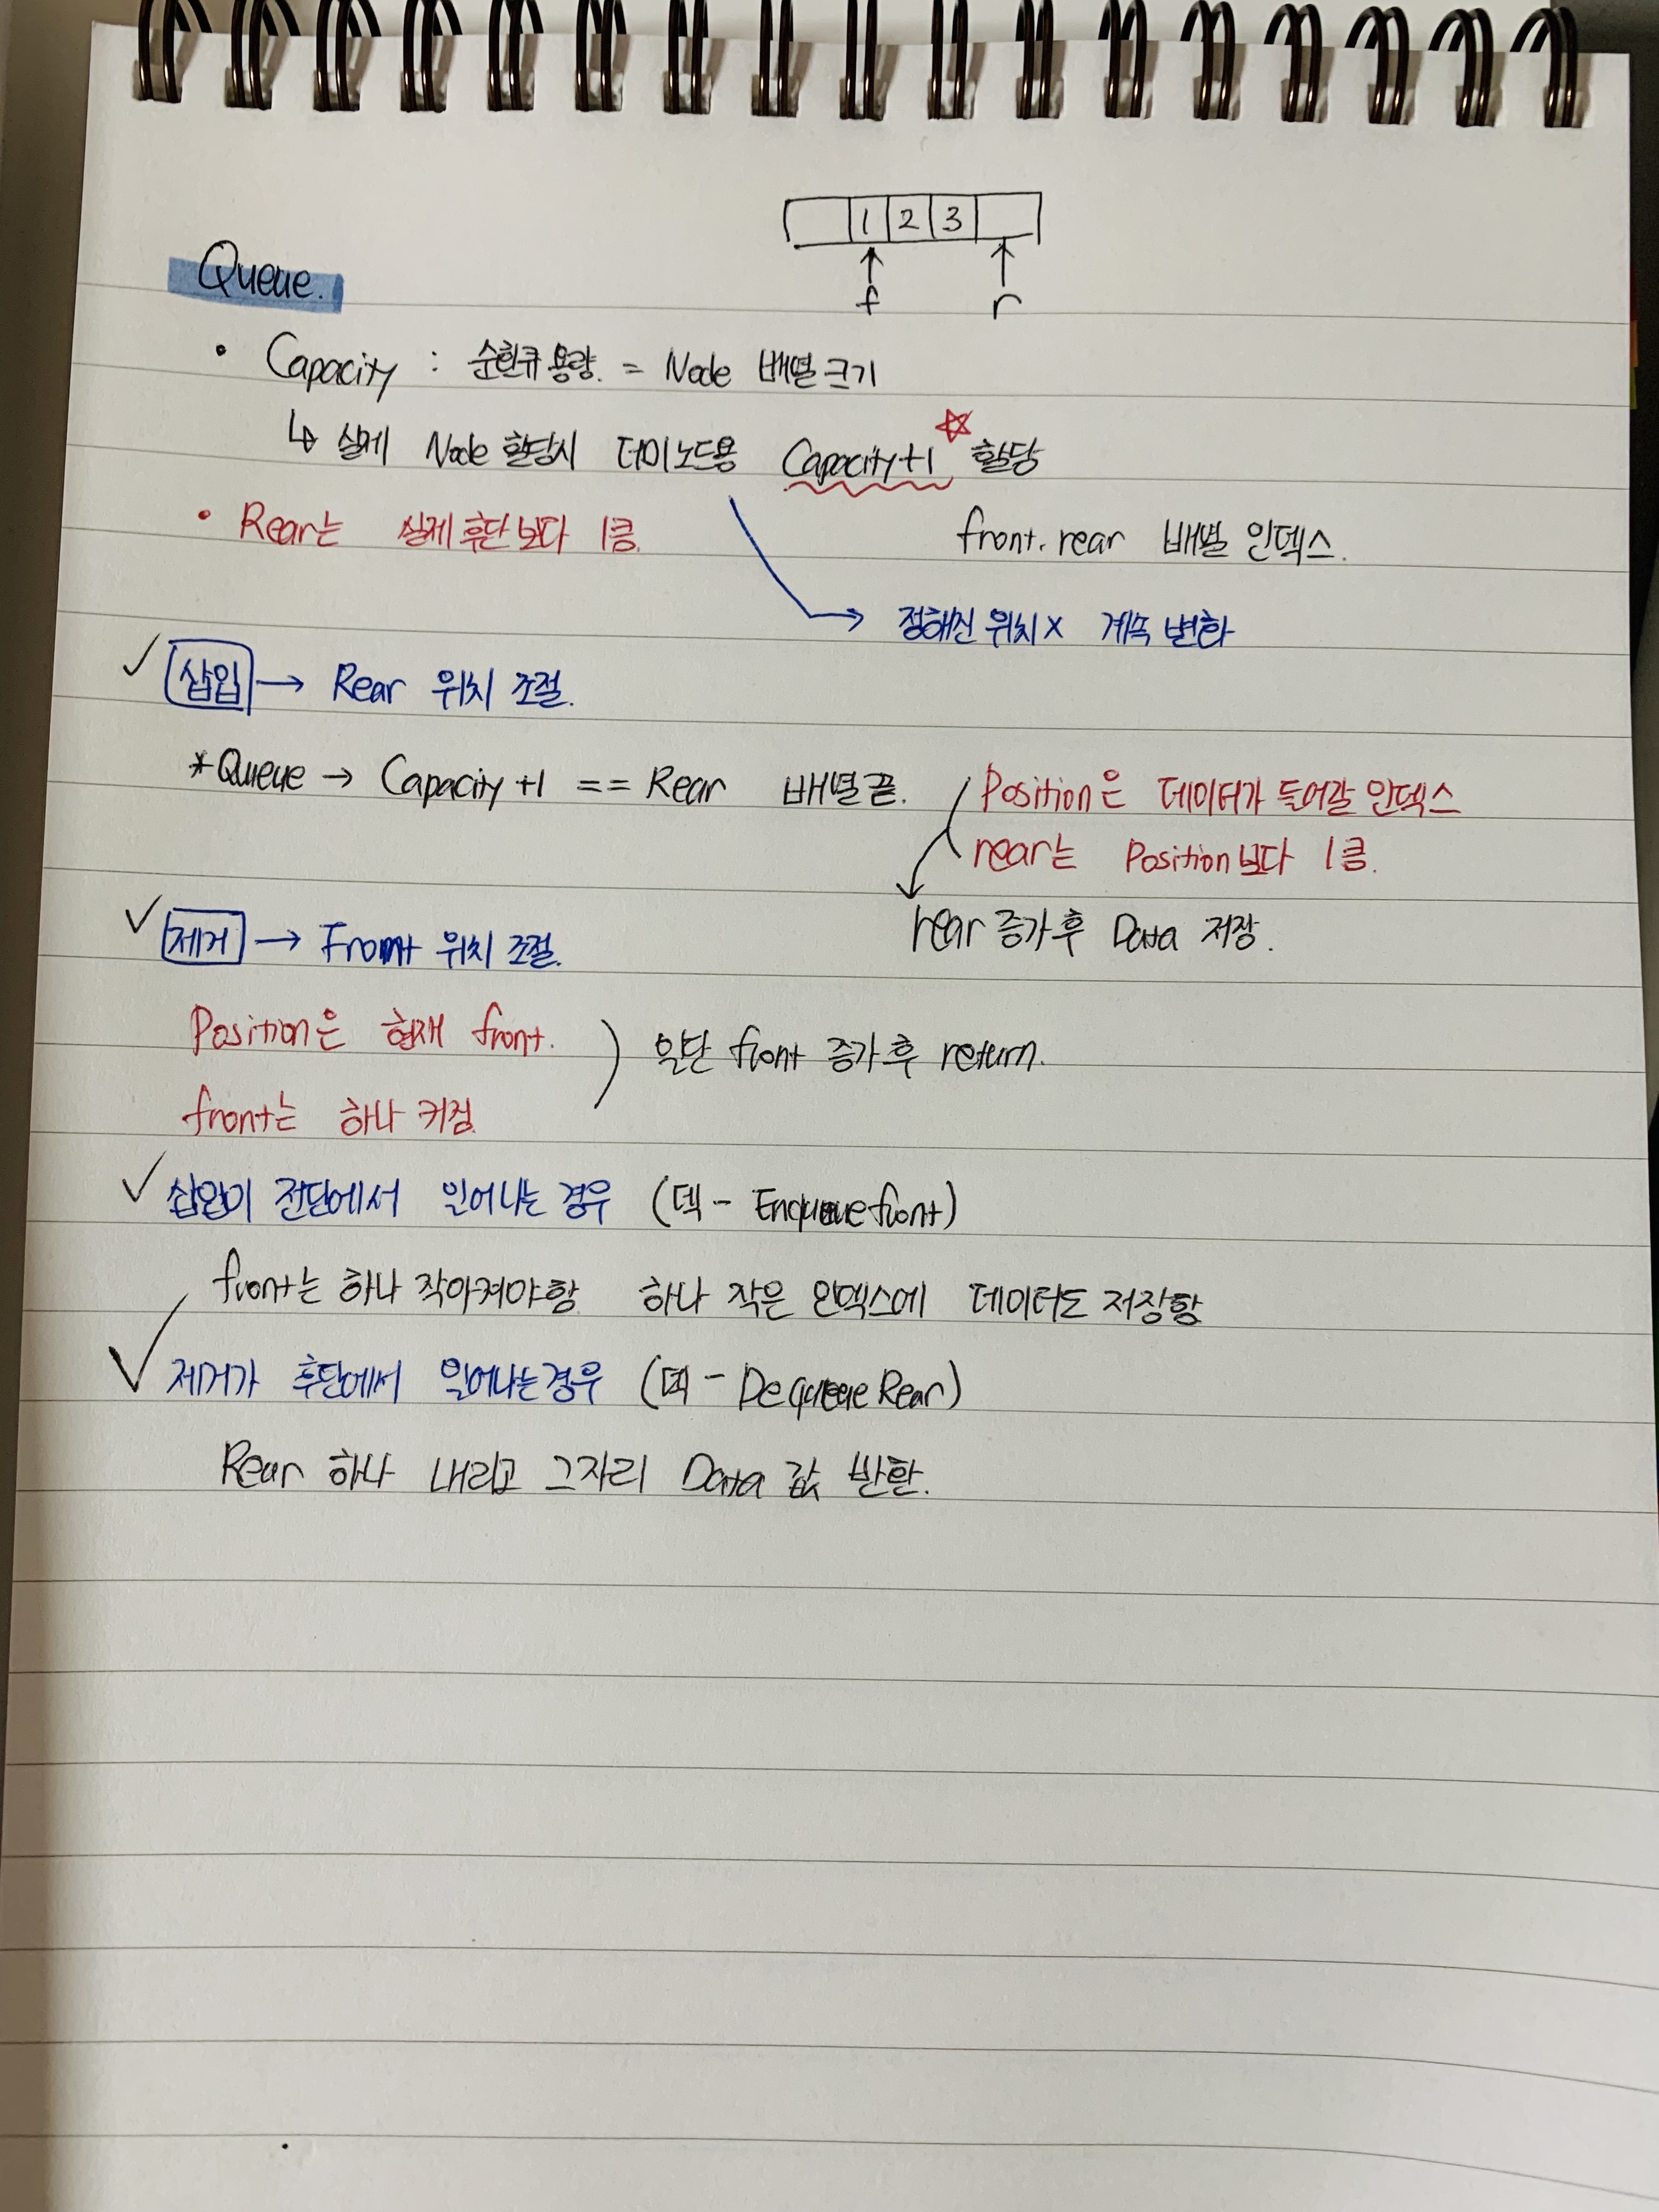 1 2 3
f r
Queue.
• Capacity : 순환큐 용량. = Node 배열 크기
↳ 실제 Node 할당시 더미노드용 Capacity+1 ☆ 할당
• Rear는 실제 후단보다 1큼.
front. rear 배열 인덱스.
→ 정해진 위치 X 계속 변화
✓ 삽입 → Rear 위치 조절.
*Queue → Capacity+1 == Rear 배열 끝.
Position은 데이터가 들어갈 인덱스
rear는 Position보다 1큼.
rear 증가 후 Data 저장.
✓ 제거 → Front 위치 조절.
Position은 현재 front.
front는 하나 커짐
) 일단 front 증가 후 return.
✓ 삽입이 전단에서 일어나는 경우 (덱 - Enqueuefront)
front는 하나 작아져야함 하나 작은 인덱스에 데이터도 저장함
✓ 제거가 후단에서 일어나는 경우 (덱 - Dequeue Rear)
Rear 하나 내리고 그자리 Data 값 반환.